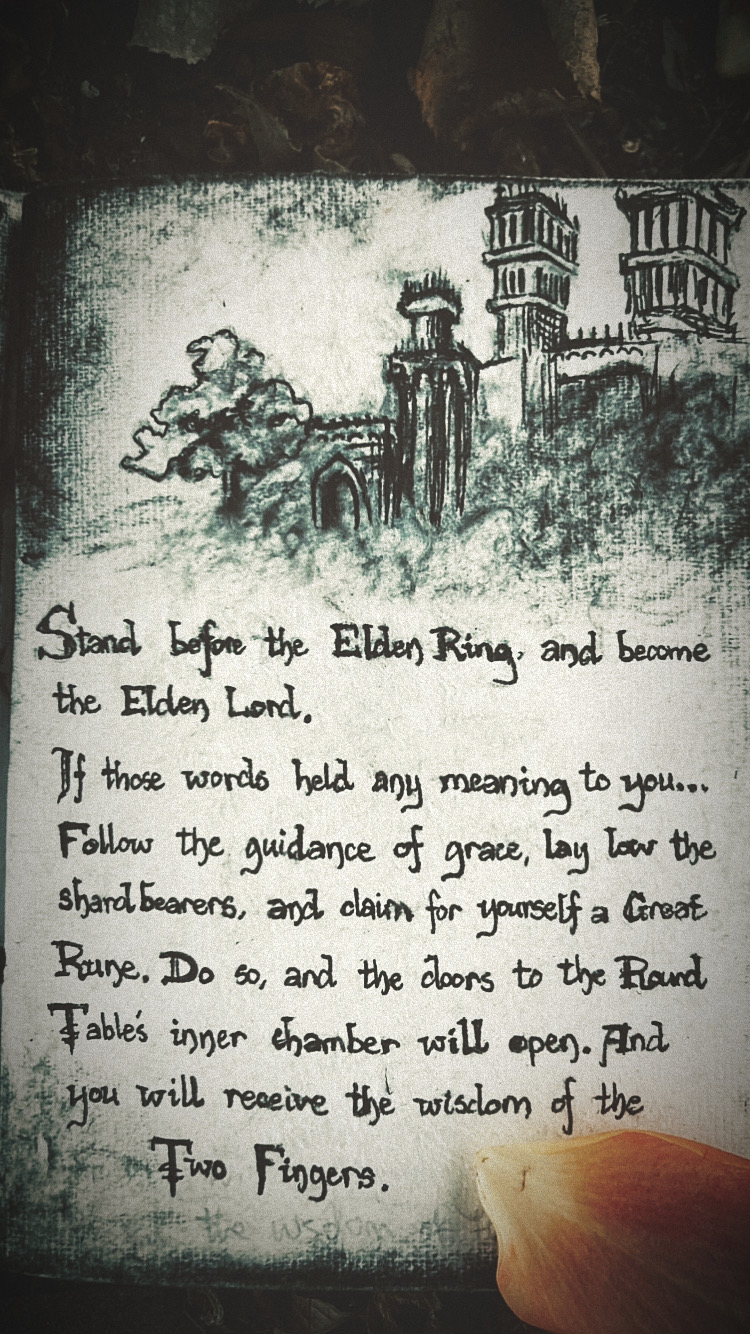 Stand before the Elden Ring, and become
the Elden Lord.
If those words held any meaning to you...
Follow the guidance of grace, lay low the
shardbearers, and claim for yourself a Great
Rune. Do so, and the doors to the Round
Table's inner chamber will open. And
you will receive the wisdom of the
Two Fingers.